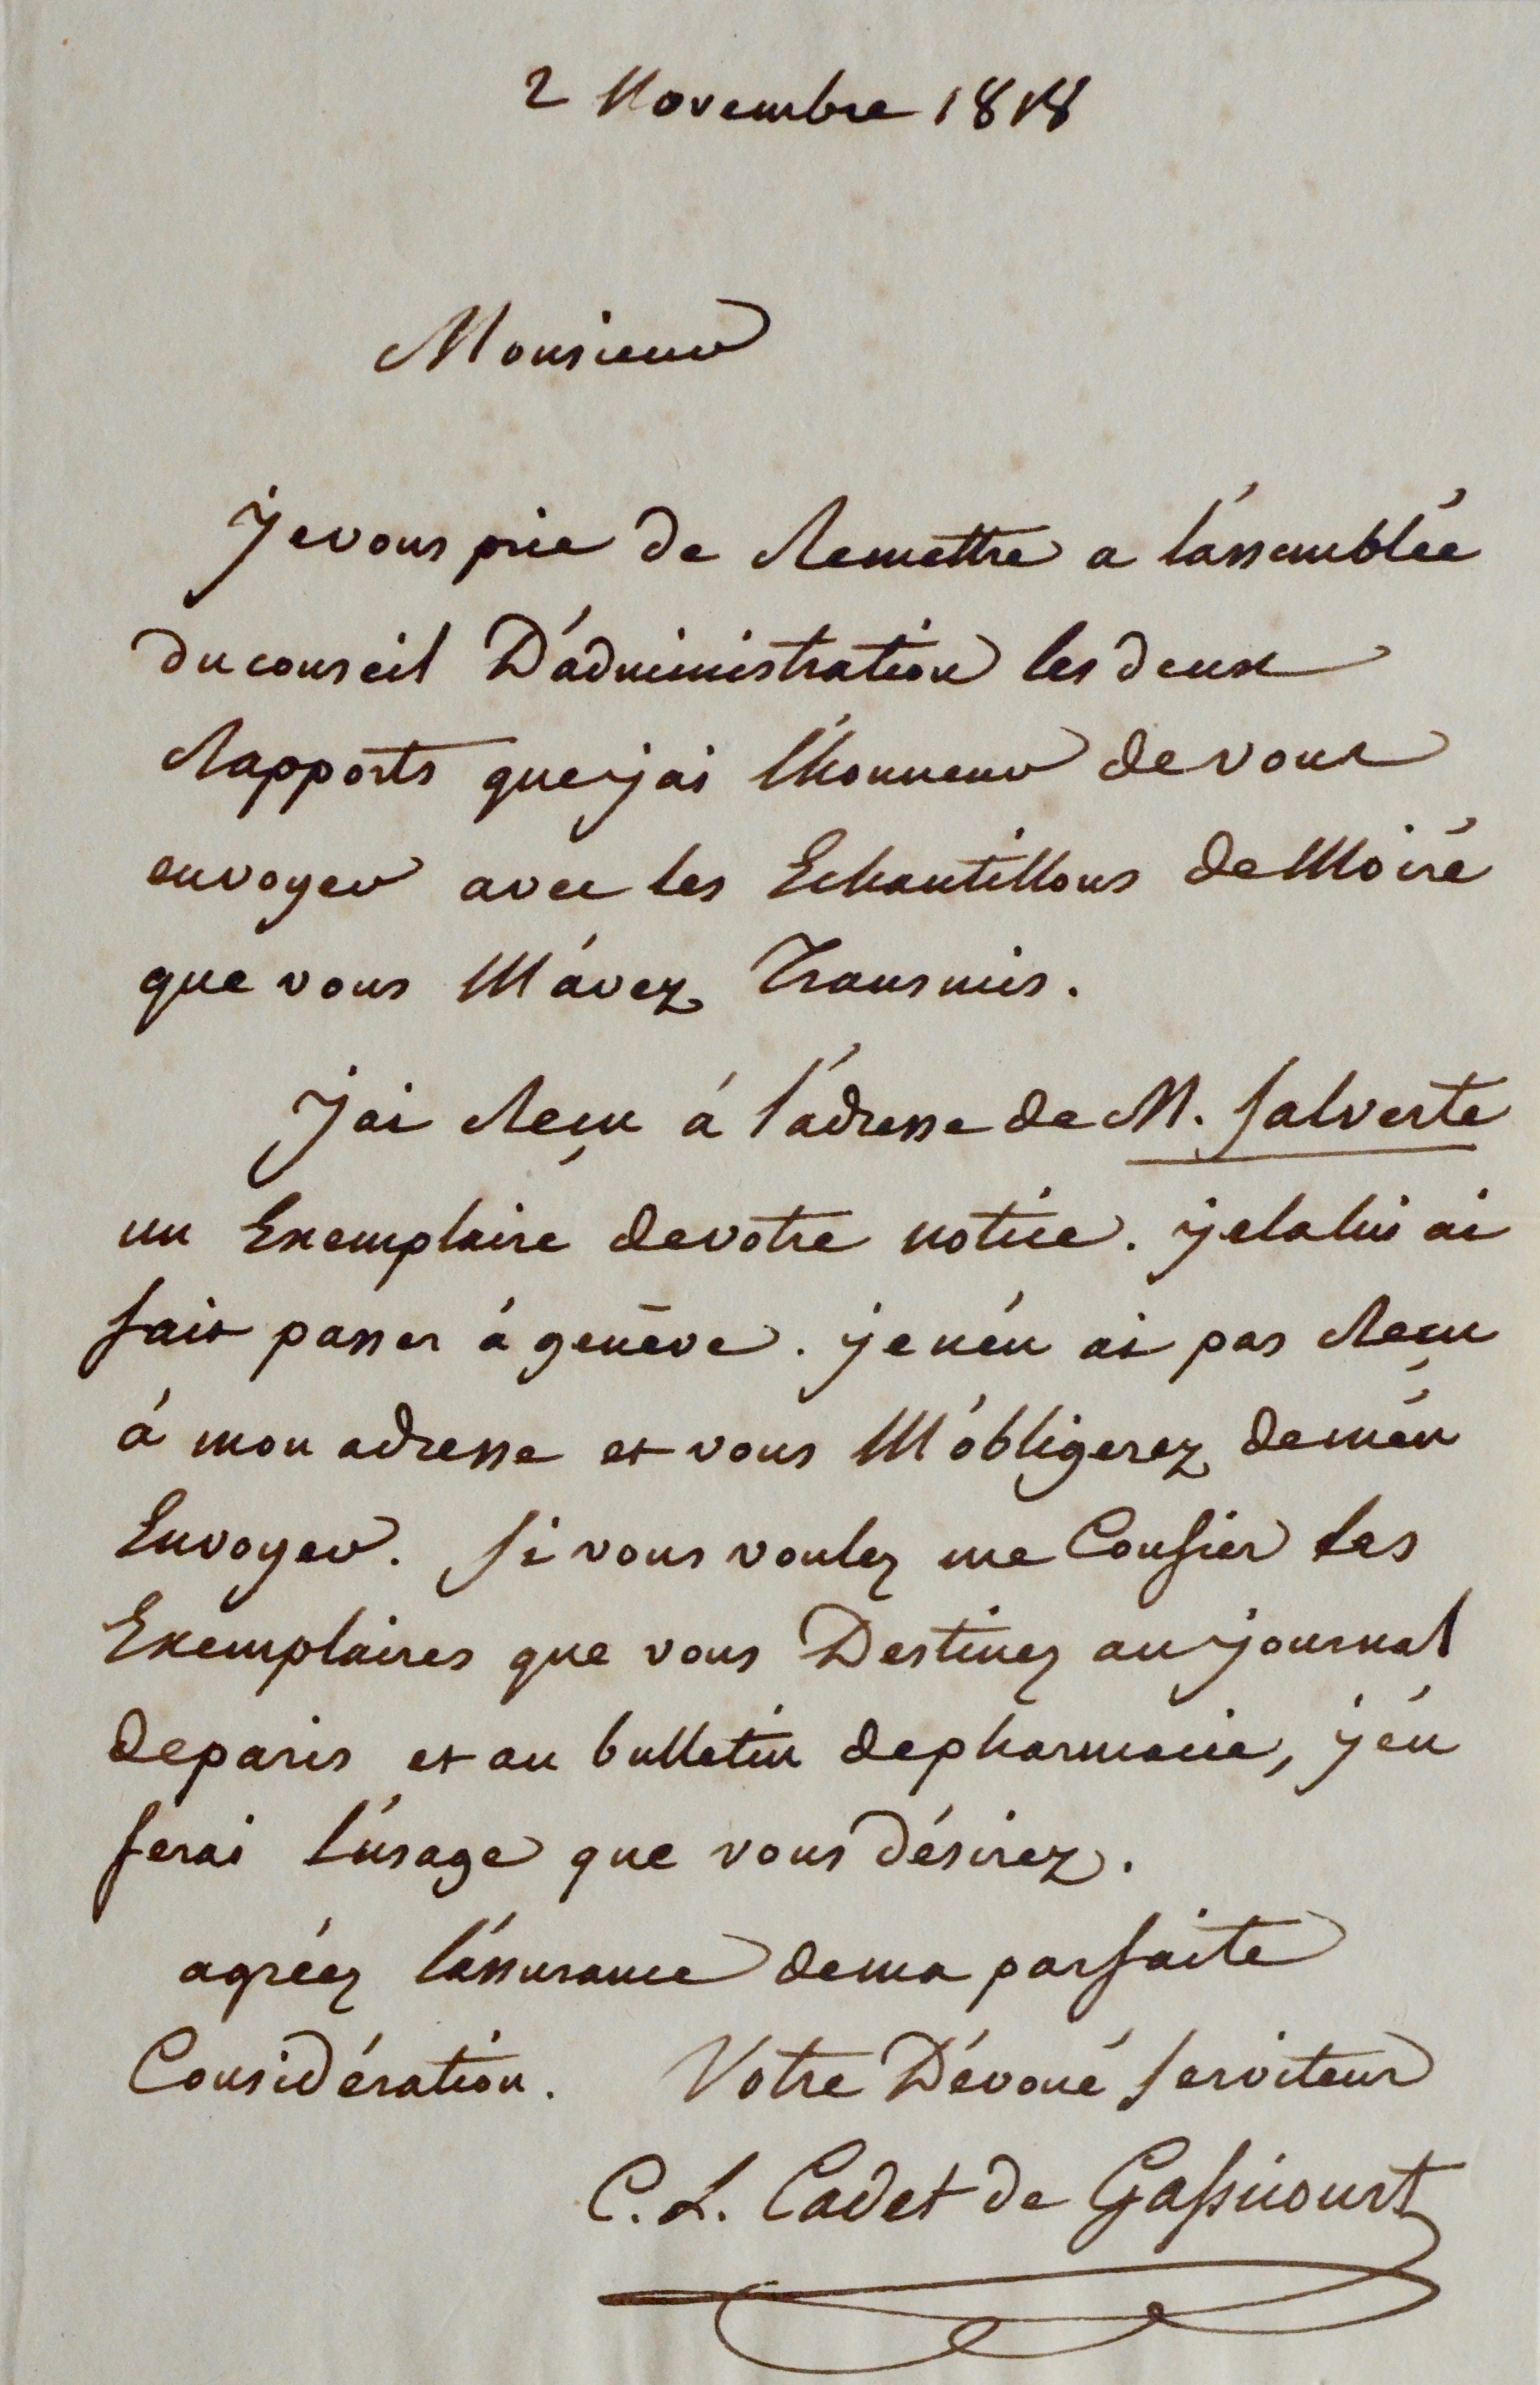 2 Novembre 1818
Monsieur
Je vous prie de Remettre a l'assemblée
du conseil D'administration les deux
Rapports que j'ai l'honneur de vous
envoyer avec les Echantillons de Moiré
que vous M'avez Transmis.
J'ai Reçu à l'adresse de M. Salverte
un Exemplaire de votre notice. je la lui ai
fait passer à genève. je n'en ai pas Reçu
à mon adresse et vous M'obligerez de m'en
Envoyer. Si vous voulez me Confier les
Exemplaires que vous Destinez au journal
de paris et au bulletin de pharmacie, j'en
ferai l'usage que vous désirez.
agréez l'assurance de ma parfaite
Considération. Votre Dévoué serviteur
C. L. Cadet de Gassicourt